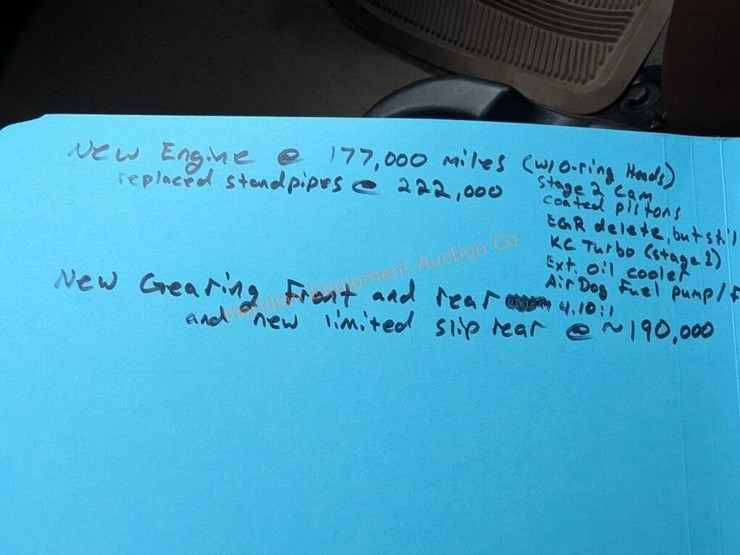 New Engine @ 177,000 miles (w/ O-ring Heads)
replaced standpipes @ 222,000
Stage 2 Cam
coated pistons
EGR delete, but
KC Turbo (stage 1)
Ext. oil cooler
AirDog Fuel pump/
New Gearing Front and rear 4.10:1
and new limited slip rear @ ~190,000
Equipment Auction Co